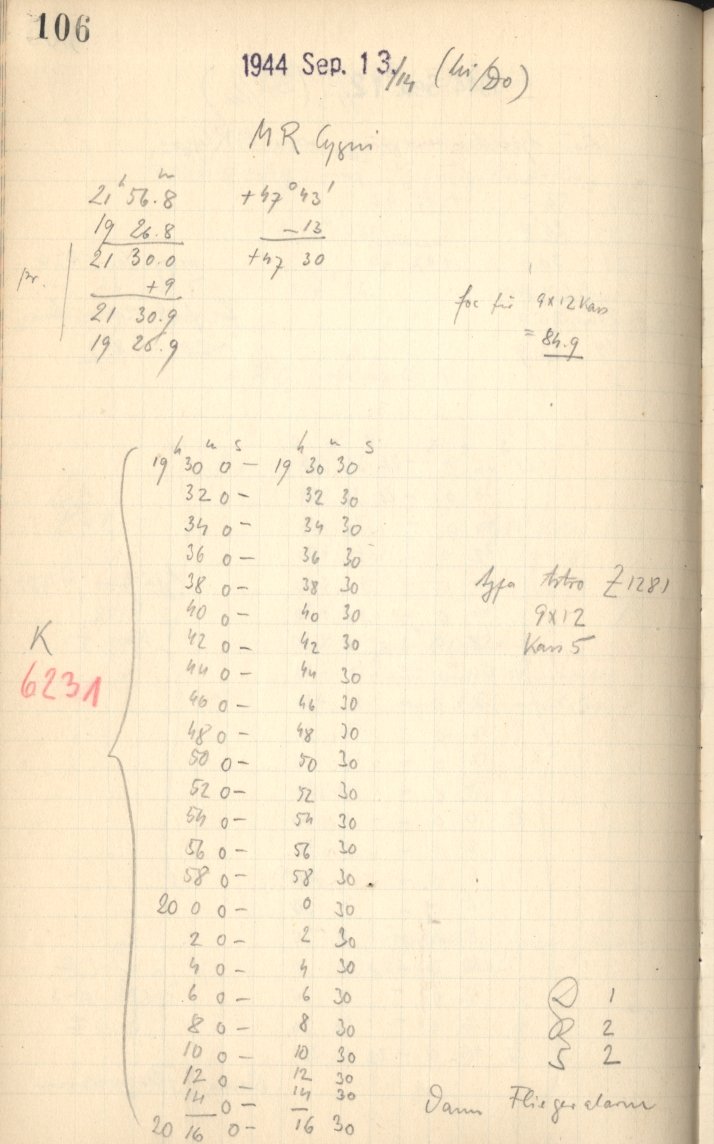 106
1944 Sep. 13./14 (Mi/Do)
MR Cygni
21ʰ 56.8ᵐ +47° 43'
19 26.8 −13
21 30.0 +47 30
pr. +9
21 30.9
19 26.9
foc für 9x12 Kass
= 84.9
h m s h m s
19 30 0 – 19 30 30
32 0 – 32 30
34 0 – 34 30
36 0 – 36 30
38 0 – 38 30
40 0 – 40 30
42 0 – 42 30
44 0 – 44 30
46 0 – 46 30
48 0 – 48 30
50 0 – 50 30
52 0 – 52 30
54 0 – 54 30
56 0 – 56 30
58 0 – 58 30
20 0 0 – 0 30
2 0 – 2 30
4 0 – 4 30
6 0 – 6 30
8 0 – 8 30
10 0 – 10 30
12 0 – 12 30
14 0 – 14 30
20 16 0 – 16 30
K
6231
Agfa Astro Z1281
9x12
Kass 5
1
2
S 2
Dann Fliegeralarm